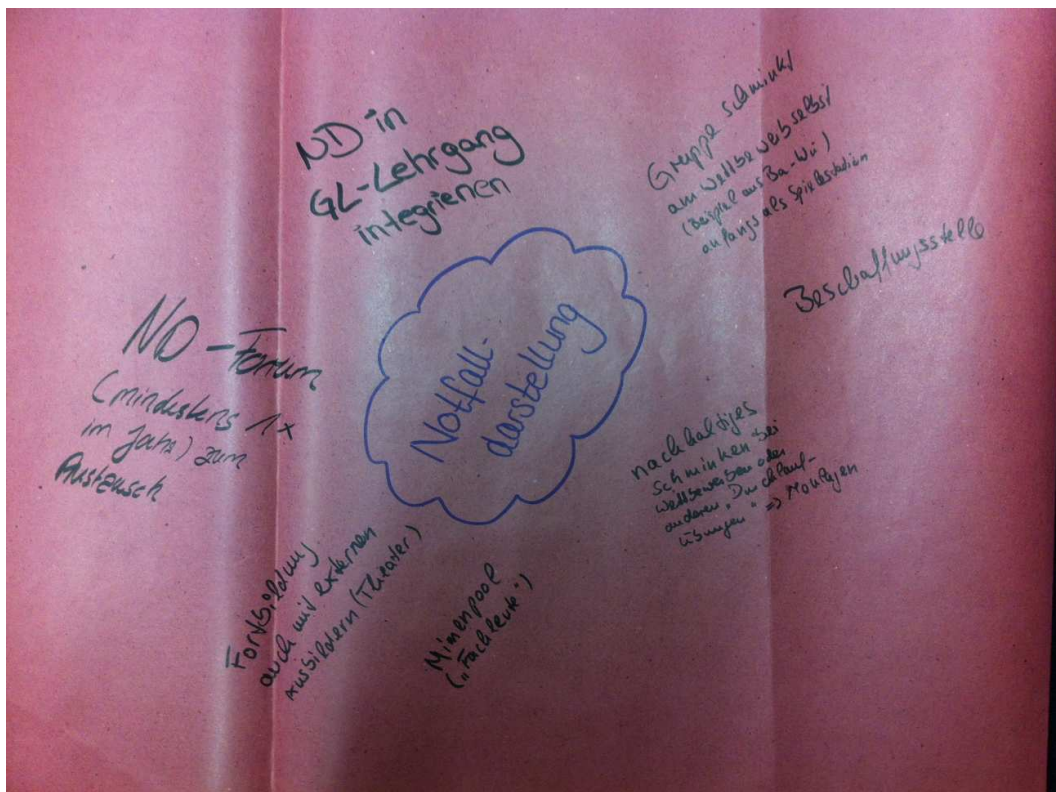 ND in
GL-Lehrgang
integrieren
Gruppe schminkt
am Wettbewerb selbst
(Beispiel aus Ba-Wü)
anfangs als Spielestation
Beschaffungsstelle
Notfall-
darstellung
ND-Forum
(mindestens 1x
im Jahr) zum
Austausch
nachhaltiges
schminken bei
Wettbewerben oder
anderen "Durchlauf-
übungen" => Moulagen
Fortbildung
auch mit externen
Ausbildern (Theater)
Mimenpool
("Fachleute")